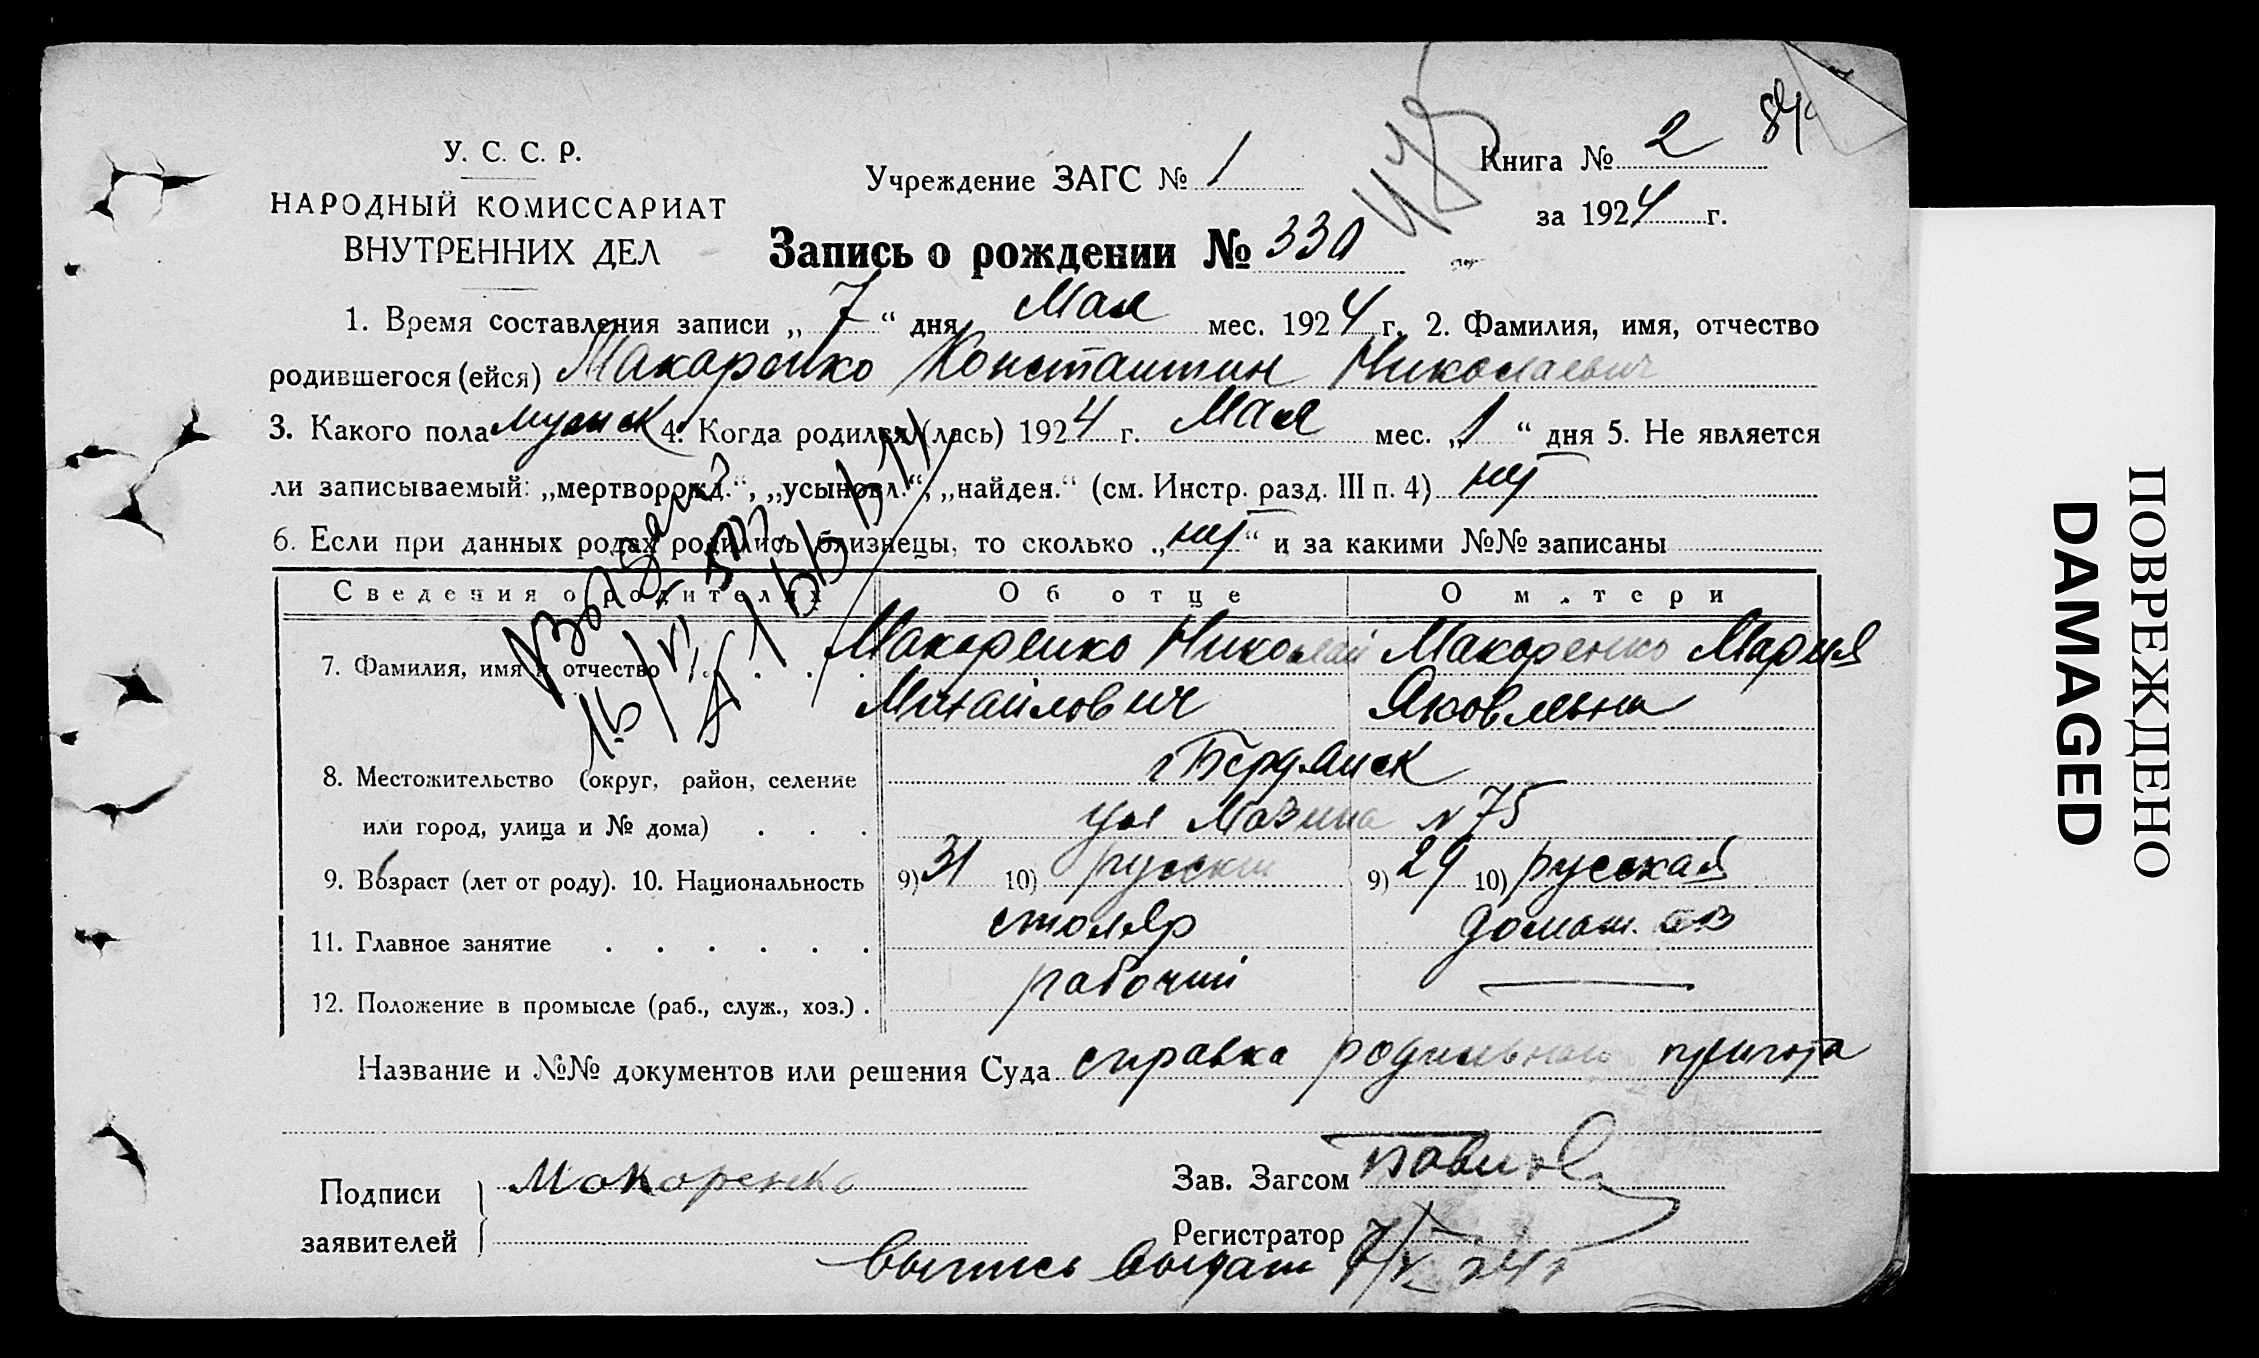 У. С. С. Р.
НАРОДНЫЙ КОМИССАРИАТ
ВНУТРЕННИХ ДЕЛ
Учреждение ЗАГС № 1
Книга № 2
84
за 1924 г.
Запись о рождении № 330
1. Время составления записи „ 7 “ дня Мая мес. 1924 г. 2. Фамилия, имя, отчество
родившегося (ейся) Макаренко Константин Николаевич
3. Какого пола мужск 4. Когда родился (лась) 1924 г. Мая мес. „ 1 “ дня 5. Не является
ли записываемый: „мертворожд.“, „усыновл.“, „найден.“ (см. Инстр. разд. III п. 4) нет
6. Если при данных родах родились близнецы, то сколько „ нет “ и за какими №№ записаны
Сведения о родителях Об отце О матери
7. Фамилия, имя и отчество Макаренко Николай Макаренко Мария
Михайлович Яковлевна
8. Местожительство (округ, район, селение г Бердянск
или город, улица и № дома) ул N 75
9. Возраст (лет от роду). 10. Национальность 9) 31 10) русский 9) 29 10) русская
11. Главное занятие столяр домаш.
12. Положение в промысле (раб., служ., хоз.) рабочий
Название и №№ документов или решения Суда справка родильного приюта
Подписи Макаренко Зав. Загсом
заявителей Регистратор
выпись выдан 7/V 24 г
ПОВРЕЖДЕНО
DAMAGED